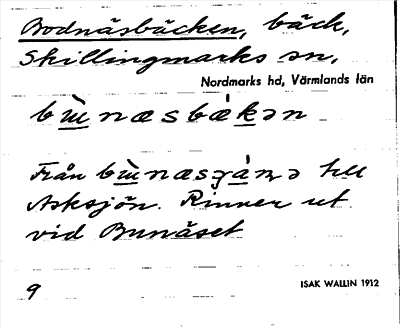 Bodnäsbäcken, bäck,
Skillingmarks sn,
Nordmarks hd, Värmlands län
Från
till
Asksjön. Rinner ut
vid Bunäset
9
ISAK WALLIN 1912